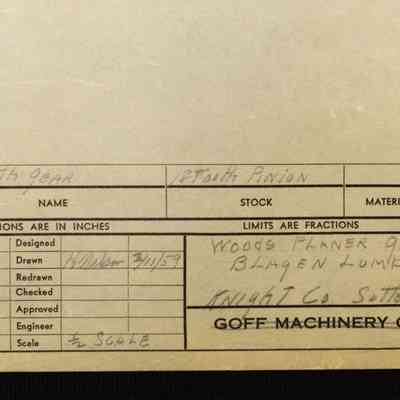 th gear 18 Tooth Pinion
NAME STOCK MATERI
IONS ARE IN INCHES LIMITS ARE FRACTIONS
Designed
Drawn 3/11/59
Redrawn
Checked
Approved
Engineer
Scale ½ SCALE
WOODS PLANER G
BLAGEN LUMB
KNIGHT Co Sutte
GOFF MACHINERY C